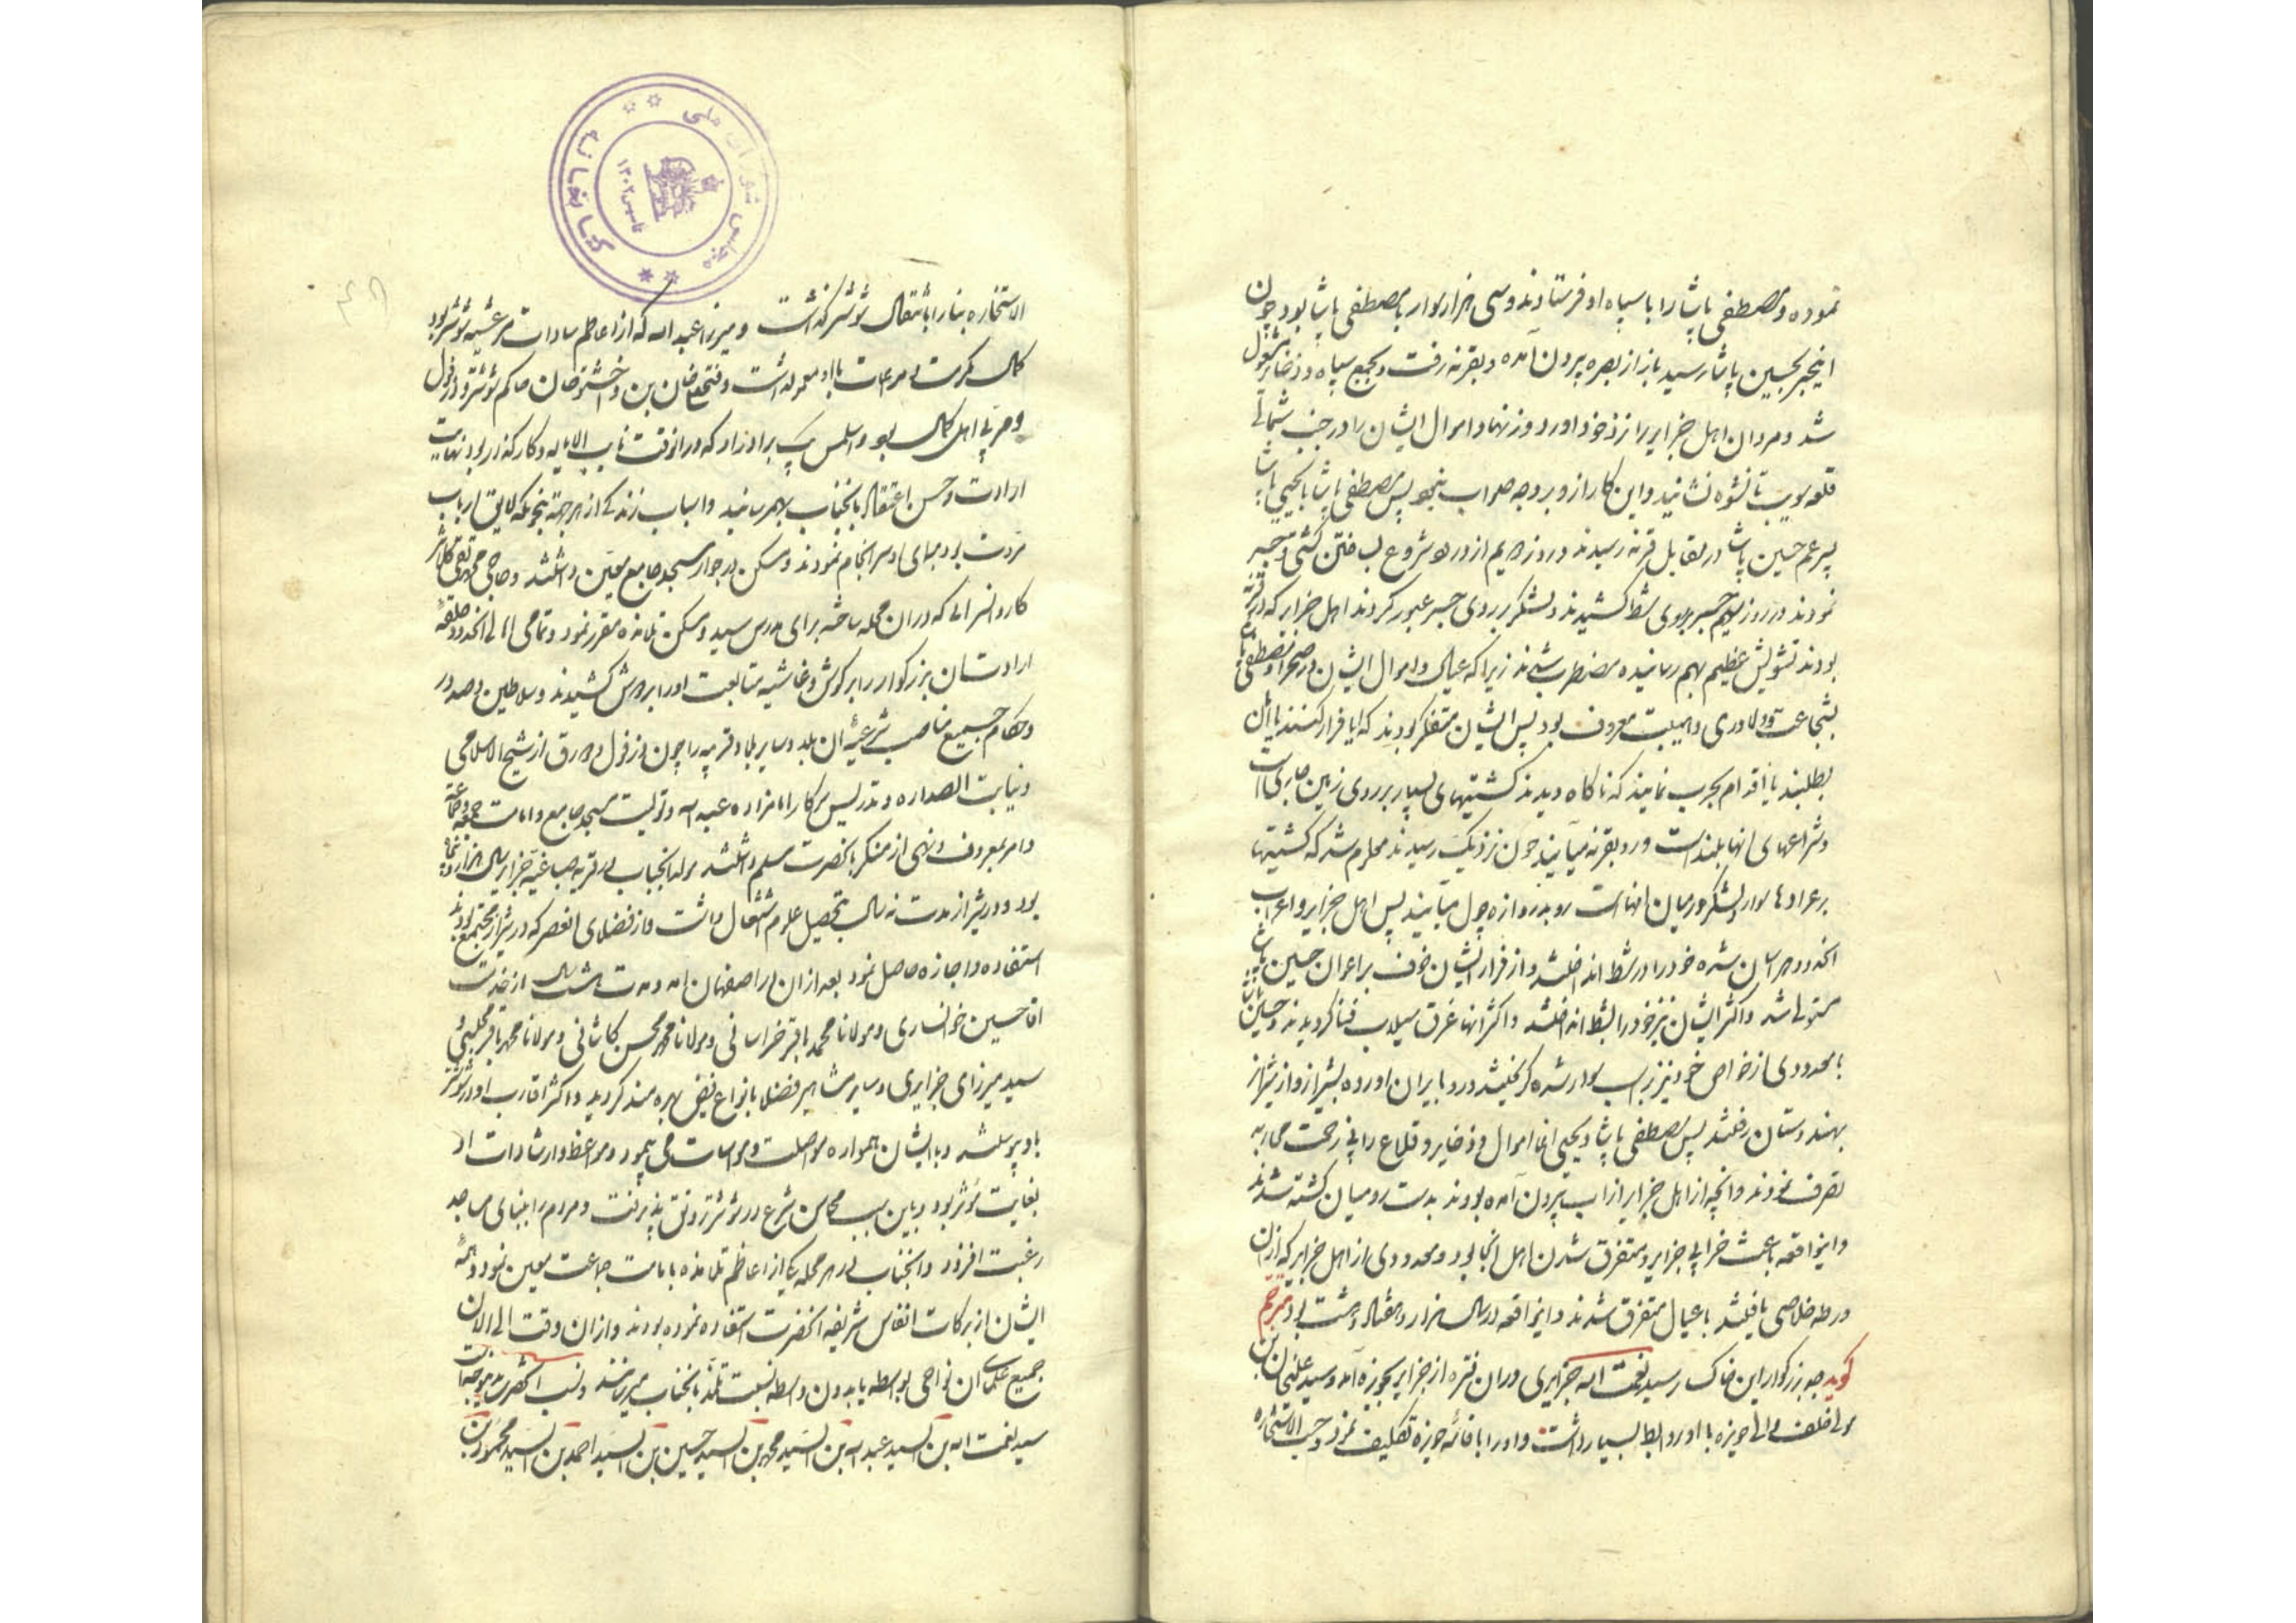 نموده و مصطفی پاشا را با سپاه او فرستادند و سی هزار سوار با مصطفی پاشا بود چون
اینخبر بحسین پاشا رسید باز از بصره بیرون آمده و بقرنه رفت و بجمع سپاه و ذخایر مشغول
شد و مردان اهل جزایر را نزد خود آورد و زنها و اموال ایشان را در جنب شمالی
قلعه سویب تا نشوه نشانید و این کار از او بر وجه صواب نبود پس مصطفی پاشا با یحیی پاشا
پسر عم حسین پاشا در مقابل قرنه رسیدند و در روز دهم از ورود شروع بساختن کشتی و جسر
نمودند و در روز سیم جسر بر روی شط کشیدند و لشکر بر روی جسر عبور کردند اهل جزایر که در قرنه
بودند تشویش عظیم بهم رسانیده مضطرب شدند زیرا که عیال و اموال ایشان در صحرا و مصطفی پاشا
بشجاعت و دلاوری و اهلیت معروف بود پس ایشان متفکر بودند که ایا فرار کنند یا امان
بطلبند یا اقدام بحرب نمایند که ناگاه دیدند کشتیهای بسیار بر روی زمین جاری است
و شراعهای انها بلند است و رو بقرنه می‌آیند چون نزدیک رسیدند معلوم شد که کشتیها
بر عرادها سوار و لشکر در میان انها است رو بدروازه چول می‌آیند پس اهل جزایر و اعراب
انحدود هراسان شده خود را در شط انداختند و از فرار ایشان خوف بر اعوان حسین پاشا
مستولی شد و اکثر ایشان نیز خود را بشط انداختند و اکثر انها غرق سیلاب فنا گردیدند و حسین پاشا
با معدودی از خواص خود نیز بر اسب سوار شده گریختند و رو بایران اورده بشیراز و از شیراز
بهندوستان رفتند پس مصطفی پاشا و یحیی اغا اموال و ذخایر و قلاع را بی زحمت محاربه
تصرف نمودند و انچه از اهل جزایر از اب بیرون آمده بودند بدست رومیان کشته شدند
و اینواقعه باعث خرابی جزایر و متفرق شدن اهل انجا بود و معدودی از اهل جزایر که از ان
ورطه خلاصی یافتند با عیال متفرق شدند و اینواقعه در سال هزار و هفتاد و هشت بود مترجم
گوید جد بزرگوار این خاکسار سید نعمت الله جزایری در ان فتره از جزایر بحویزه آمد و سید علیخان بن
مولی خلف والی حویزه با او روابط بسیار داشت و او را باقامت حویزه تکلیف نمود و حسب الاستخاره
الاستخاره بنا را بانتقال شوشتر گذاشت و میرزا عبد الله که از اعاظم سادات مرعشیه شوشتر بود
کمال مکرمت و مراعات با او معمول داشت و فتحعلیخان بن واخشتوخان حاکم شوشتر و دزفول
و مربی اهل کمال بود و اسلمس بیک برادرزاده که در انوقت نایب الایاله و کارگذار بود نهایت
ارادت و حسن اعتقاد بانجناب بهمرسانید و اسباب زندگی از هر جهة بنحویکه لایق ارباب
مروت بود مهیای و سرانجام نمودند و مسکن در جوار مسجد جامع معین داشتند و حاجی محمد تقی کلانتر
کاروانسرائی که در ان محله ساخته برای مدرس سید و مسکن تلامذه مقرر نمود و تمامی اهالی انحدود حلقه
ارادت ان بزرگوار را بر گوش و غاشیه متابعت او را بر دوش کشیدند و سلاطین و صدور
و حکام جمیع مناصب شرعیه ان بلد و سایر بلاد قریبه را چون دزفول و دورق از شیخ الاسلامی
و نیابت الصداره و تدریس سرکار امامزاده عبد الله و تولیت مسجد جامع و امامت جمعه و جماعة
و امر بمعروف و نهی از منکر بانحضرت مسلم داشتند مولد انجناب در قریه صباغیه جزایر سال هزار و پنجاه
بود و در شیراز مدت نه سال بتحصیل علوم اشتغال داشت و از فضلای العصر که در شیراز مجتمع بودند
استفاده و اجازه حاصل نمود بعد از ان در اصفهان امد و مدت هشت سال از خدمت
اقا حسین خوانساری و مولانا محمد باقر خراسانی و مولانا محمد محسن کاشانی و مولانا محمد باقر مجلسی و
سید میرزای جزایری و سایر مشاهیر فضلا بانواع فیض بهره‌مند گردید و اکثر اقارب او در شوشتر
باو پیوستند و با ایشان همواره مواصلت و مواسات می پیمود و مواعظ و ارشادات او
بغایت مؤثر بود و باین سبب محاسن شرع در شوشتر رونق پذیرفت و مردم را ببنای مساجد
رغبت افزود و انجناب در هر محله یکی از اعاظم تلامذه بامامت جماعت معین نمود و همه
ایشان از برکات انفاس شریفه انحضرت استفاده نموده بودند و از ان وقت الی الان
جمیع علمای ان نواحی بواسطه یا بدون واسطه نسبت تلمذ بانجناب میرسانند و نسب انحضرت بدینموجب است
سید نعمت الله بن السید عبد الله بن السید محمد بن السید حسین بن السید احمد بن السید محمود بن
کتابخانه مجلس شورای ملی
تاسیس ۱۳۰۲